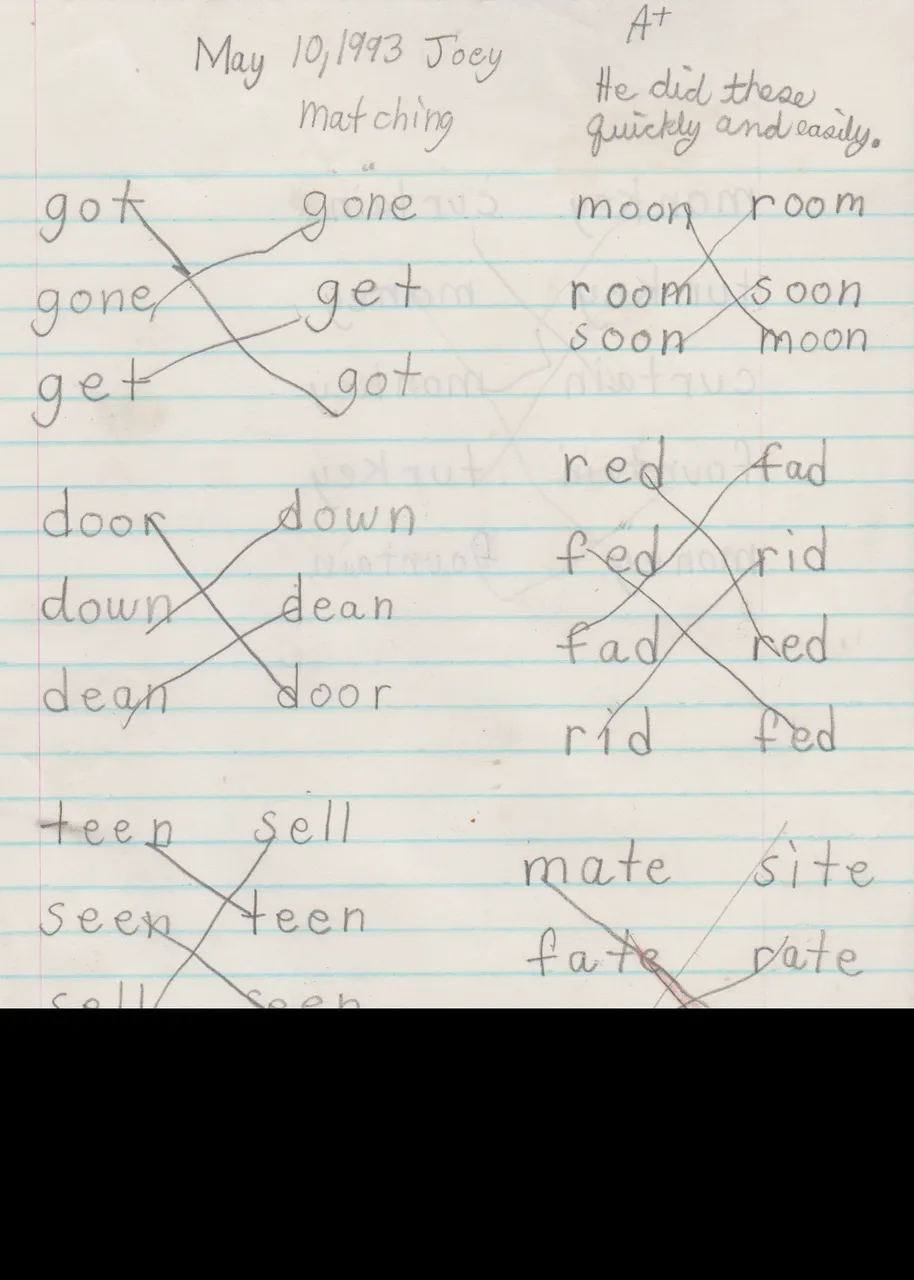 May 10, 1993 Joey
matching
A+
He did these
quickly and easily.
got gone
gone get
get got
moon room
room soon
soon moon
door down
down dean
dean door
red fad
fed rid
fad red
rid fed
teen sell
seen teen
sell seen
mate site
fate rate